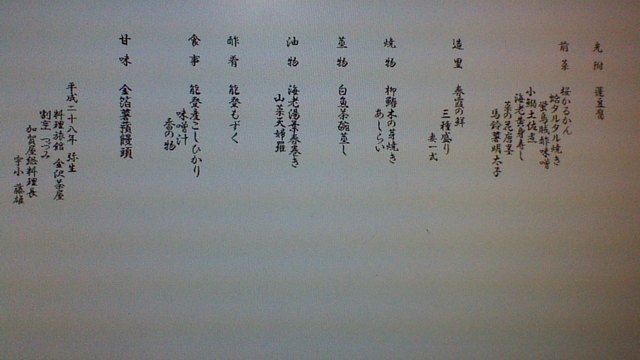 先附 蓮豆腐
前菜 桜かるかん
蛤タルタル焼き
蛍烏賊酢味噌
小鍋土佐煮
海老黄身寿し
菜の花辛子
馬鈴薯明太子
造里 春霞の鮮
三種盛り
妻一式
焼物 柳鰆木の芽焼き
あしらい
蒸物 白魚茶碗蒸し
油物 海老湯葉春巻き
山菜天婦羅
酢肴 能登もずく
食事 能登産こしひかり
味噌汁
香の物
甘味 金箔薯蕷饅頭
平成二十八年 弥生
料理旅館 金沢茶屋
割烹 つづみ
加賀屋総料理長
宇小 藤雄